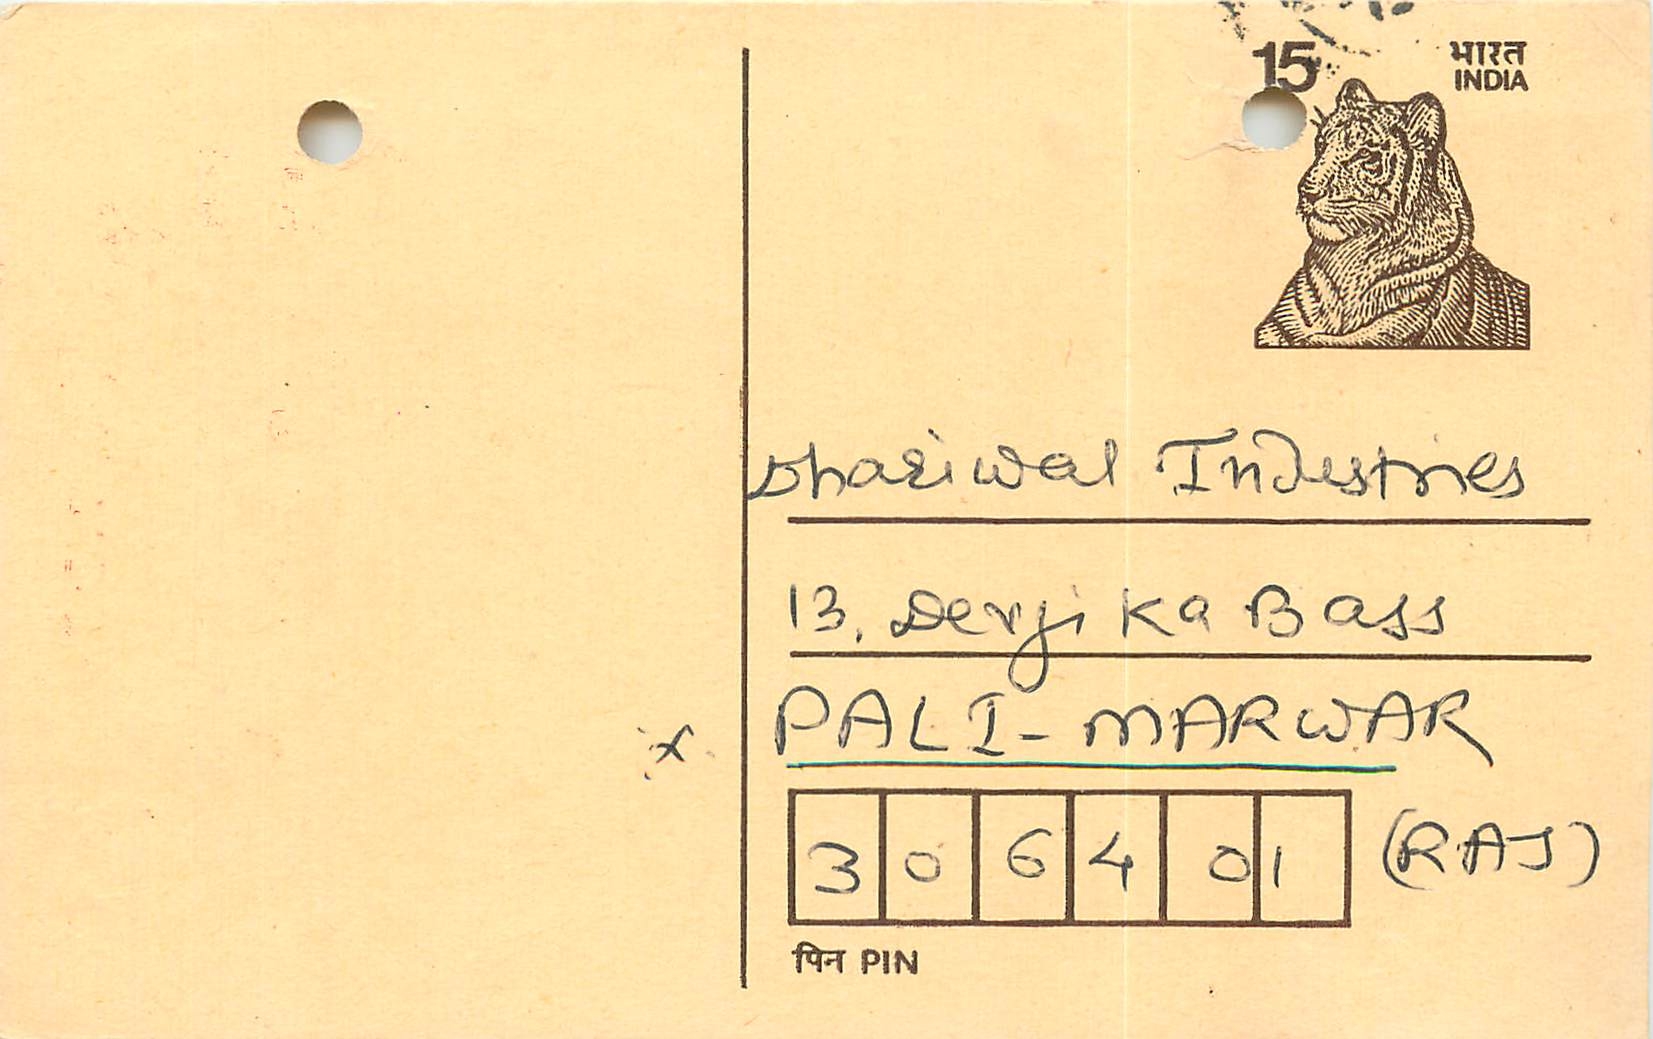 15 भारत
INDIA
Dhariwal Industries
13, Devji Ka Bass
PALI-MARWAR
306401 (RAJ)
पिन PIN
x